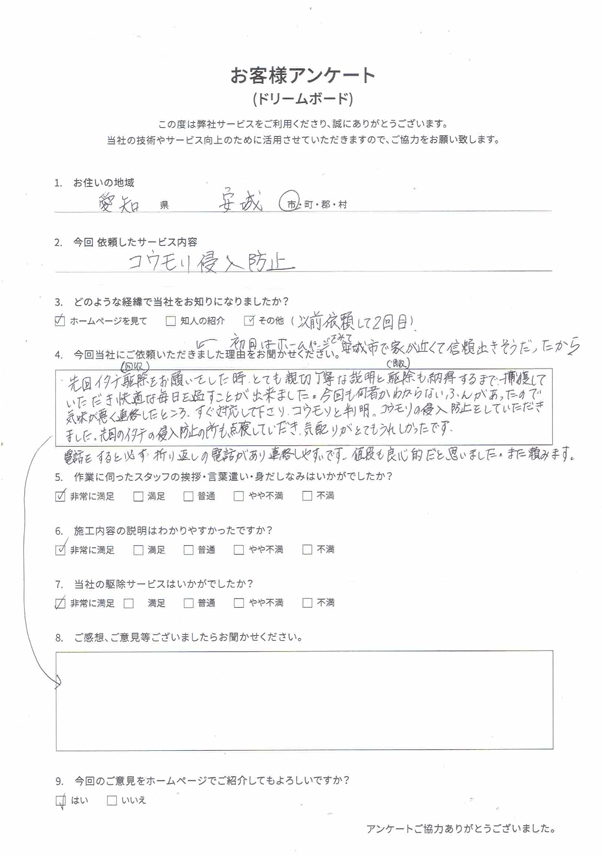 お客様アンケート
(ドリームボード)
この度は弊社サービスをご利用くださり、誠にありがとうございます。
当社の技術やサービス向上のために活用させていただきますので、ご協力をお願い致します。
1. お住いの地域
愛知 県 安城 市・町・郡・村
2. 今回 依頼したサービス内容
コウモリ侵入防止
3. どのような経緯で当社をお知りになりましたか?
ホームページを見て 知人の紹介 その他 (以前依頼して2回目)
初回はホームページをみて 安城市で家が近くて信頼出きそうだったから
4. 今回当社にご依頼いただきました理由をお聞かせください。
(回収)
先回イタチ駆除をお願いをした時、とても親切丁寧な説明と駆除も納得するまで捕獲して
いただき快適な毎日を過すことが出来ました。今回も何者かわからない、ふんがあったので
気味が悪く連絡したところ、すぐ対応して下さり、コウモリと判明。コウモリの侵入防止をしていただき
ました。先回のイタチの侵入防止の所も点検していただき、気配りがとてもうれしかったです。
電話をすると必ず折り返しの電話があり連絡しやすいです。値段も良心的だと思いました。また頼みます。
5. 作業に伺ったスタッフの挨拶・言葉遣い・身だしなみはいかがでしたか?
非常に満足 満足 普通 やや不満 不満
6. 施工内容の説明はわかりやすかったですか?
非常に満足 満足 普通 やや不満 不満
7. 当社の駆除サービスはいかがでしたか?
非常に満足 満足 普通 やや不満 不満
8. ご感想、ご意見等ございましたらお聞かせください。
9. 今回のご意見をホームページでご紹介してもよろしいですか?
はい いいえ
アンケートご協力ありがとうございました。